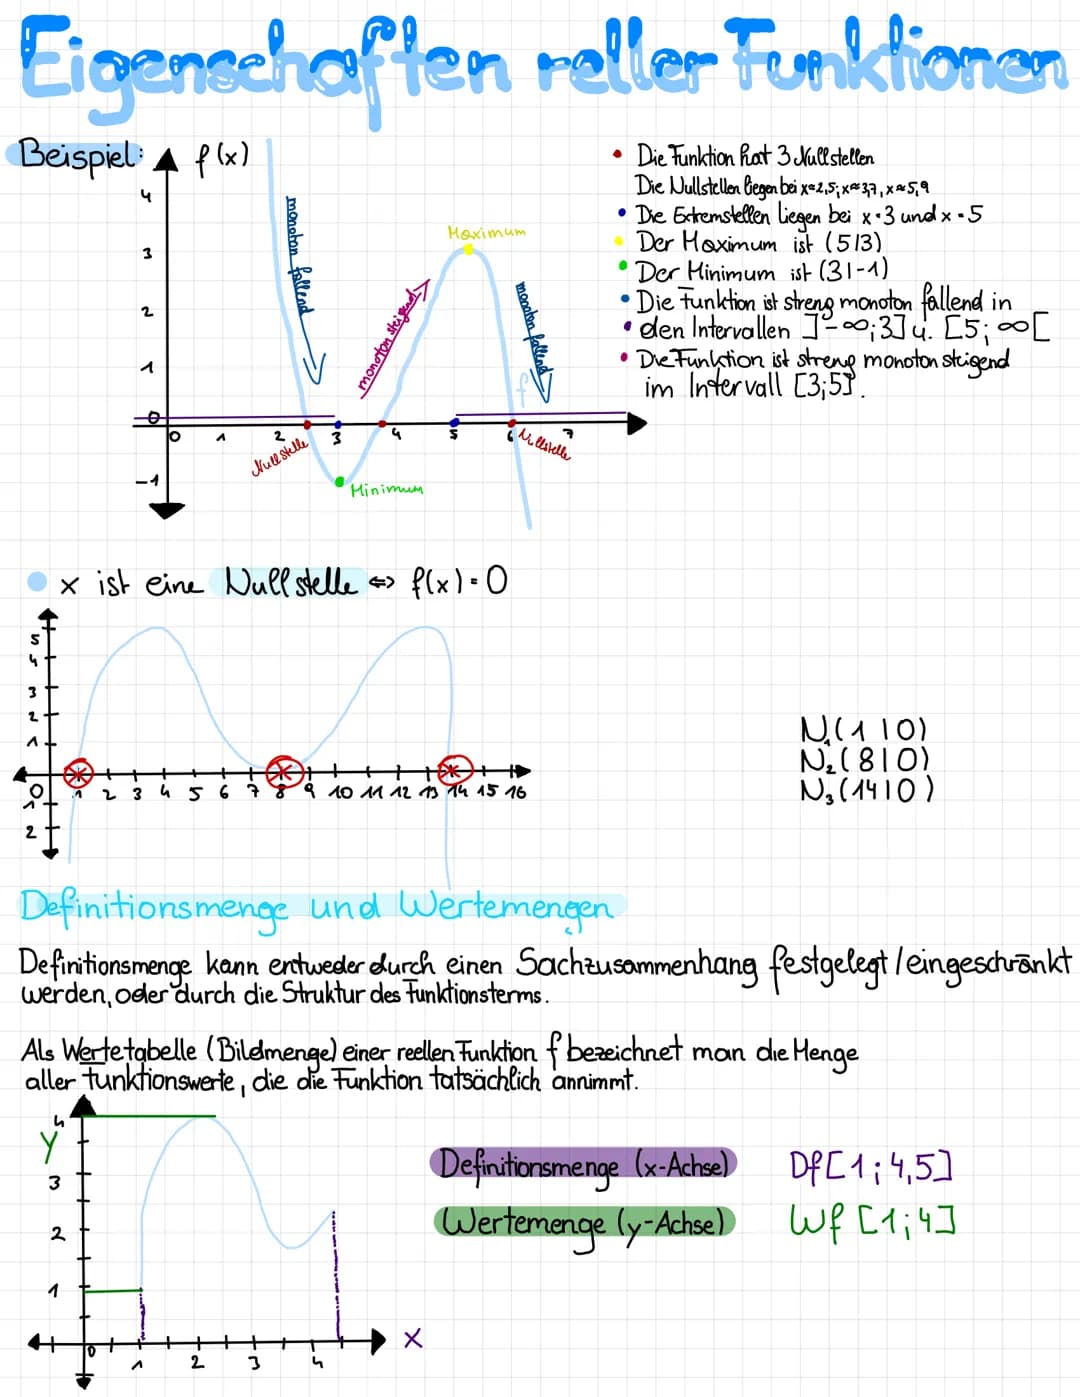 Eigenschaften reller Funktionen
Beispiel: f(x)
• Die Funktion hat 3 Nullstellen
Die Nullstellen liegen bei x≈2,5; x≈3,7, x≈5,9
• Die Extremstellen liegen bei x=3 und x=5
• Der Maximum ist (5|3)
• Der Minimum ist (3|-1)
• Die Funktion ist streng monoton fallend in
• den Intervallen ]-∞;3] u. [5;∞[
• Die Funktion ist streng monoton steigend
im Intervall [3;5].
4
3
2
1
0
-1
0 1 2 3 4 5 6 7
monoton fallend
monoton steigend
Maximum
monoton fallend
f
Nullstelle
Nullstelle
Minimum
x ist eine Nullstelle ⇔ f(x)=0
5
4
3
2
1
0
1
2
1 2 3 4 5 6 7 8 9 10 11 12 13 14 15 16
N₁(1|0)
N₂(8|0)
N₃(14|0)
Definitionsmenge und Wertemengen
Definitionsmenge kann entweder durch einen Sachzusammenhang festgelegt/eingeschränkt
werden, oder durch die Struktur des Funktionsterms.
Als Wertetabelle (Bildmenge) einer reellen Funktion f bezeichnet man die Menge
aller Funktionswerte, die die Funktion tatsächlich annimmt.
Y
4
3
2
1
0 1 2 3 4
X
Definitionsmenge (x-Achse) Df[1;4,5]
Wertemenge (y-Achse) Wf [1;4]